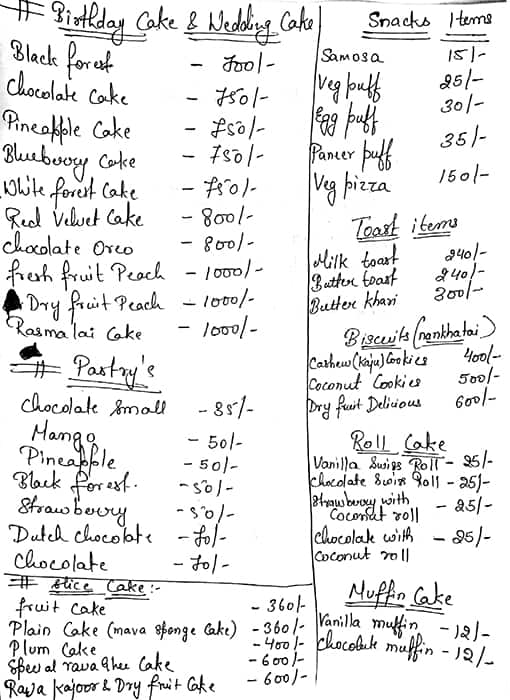 # Birthday Cake & Wedding Cake
Black forest - 700/-
Chocolate Cake - 750/-
Pineapple Cake - 750/-
Blueberry Cake - 750/-
White forest Cake - 750/-
Red Velvet Cake - 800/-
Chocolate Oreo - 800/-
fresh fruit Peach - 1000/-
Dry fruit Peach - 1000/-
Rasmalai Cake - 1000/-
# Pastry's
Chocolate Small - 35/-
Mango - 50/-
Pineapple - 50/-
Black forest. - 50/-
Strawberry - 50/-
Dutch chocolate - 70/-
Chocolate - 70/-
# Slice Cake:-
fruit Cake - 360/-
Plain Cake (mava sponge Cake) - 360/-
Plum Cake - 400/-
Ghee Cake - 600/-
Rava & Dry fruit Cake - 600/-
Snacks Items
Samosa 15/-
Veg puff 25/-
Egg puff 30/-
Paneer puff 35/-
Veg pizza 150/-
Toast items
Milk toast 240/-
Butter toast 240/-
Butter khari 300/-
Biscuits (nankhatai)
Cashew (Kaju) Cookies 400/-
Coconut Cookies 500/-
Dry fruit Delicious 600/-
Roll Cake
Vanilla Swiss Roll - 25/-
Chocolate Swiss Roll - 25/-
Strawberry with - 25/-
Coconut roll
Chocolate with - 25/-
Coconut roll
Muffin Cake
Vanilla muffin - 12/-
Chocolate muffin - 12/-